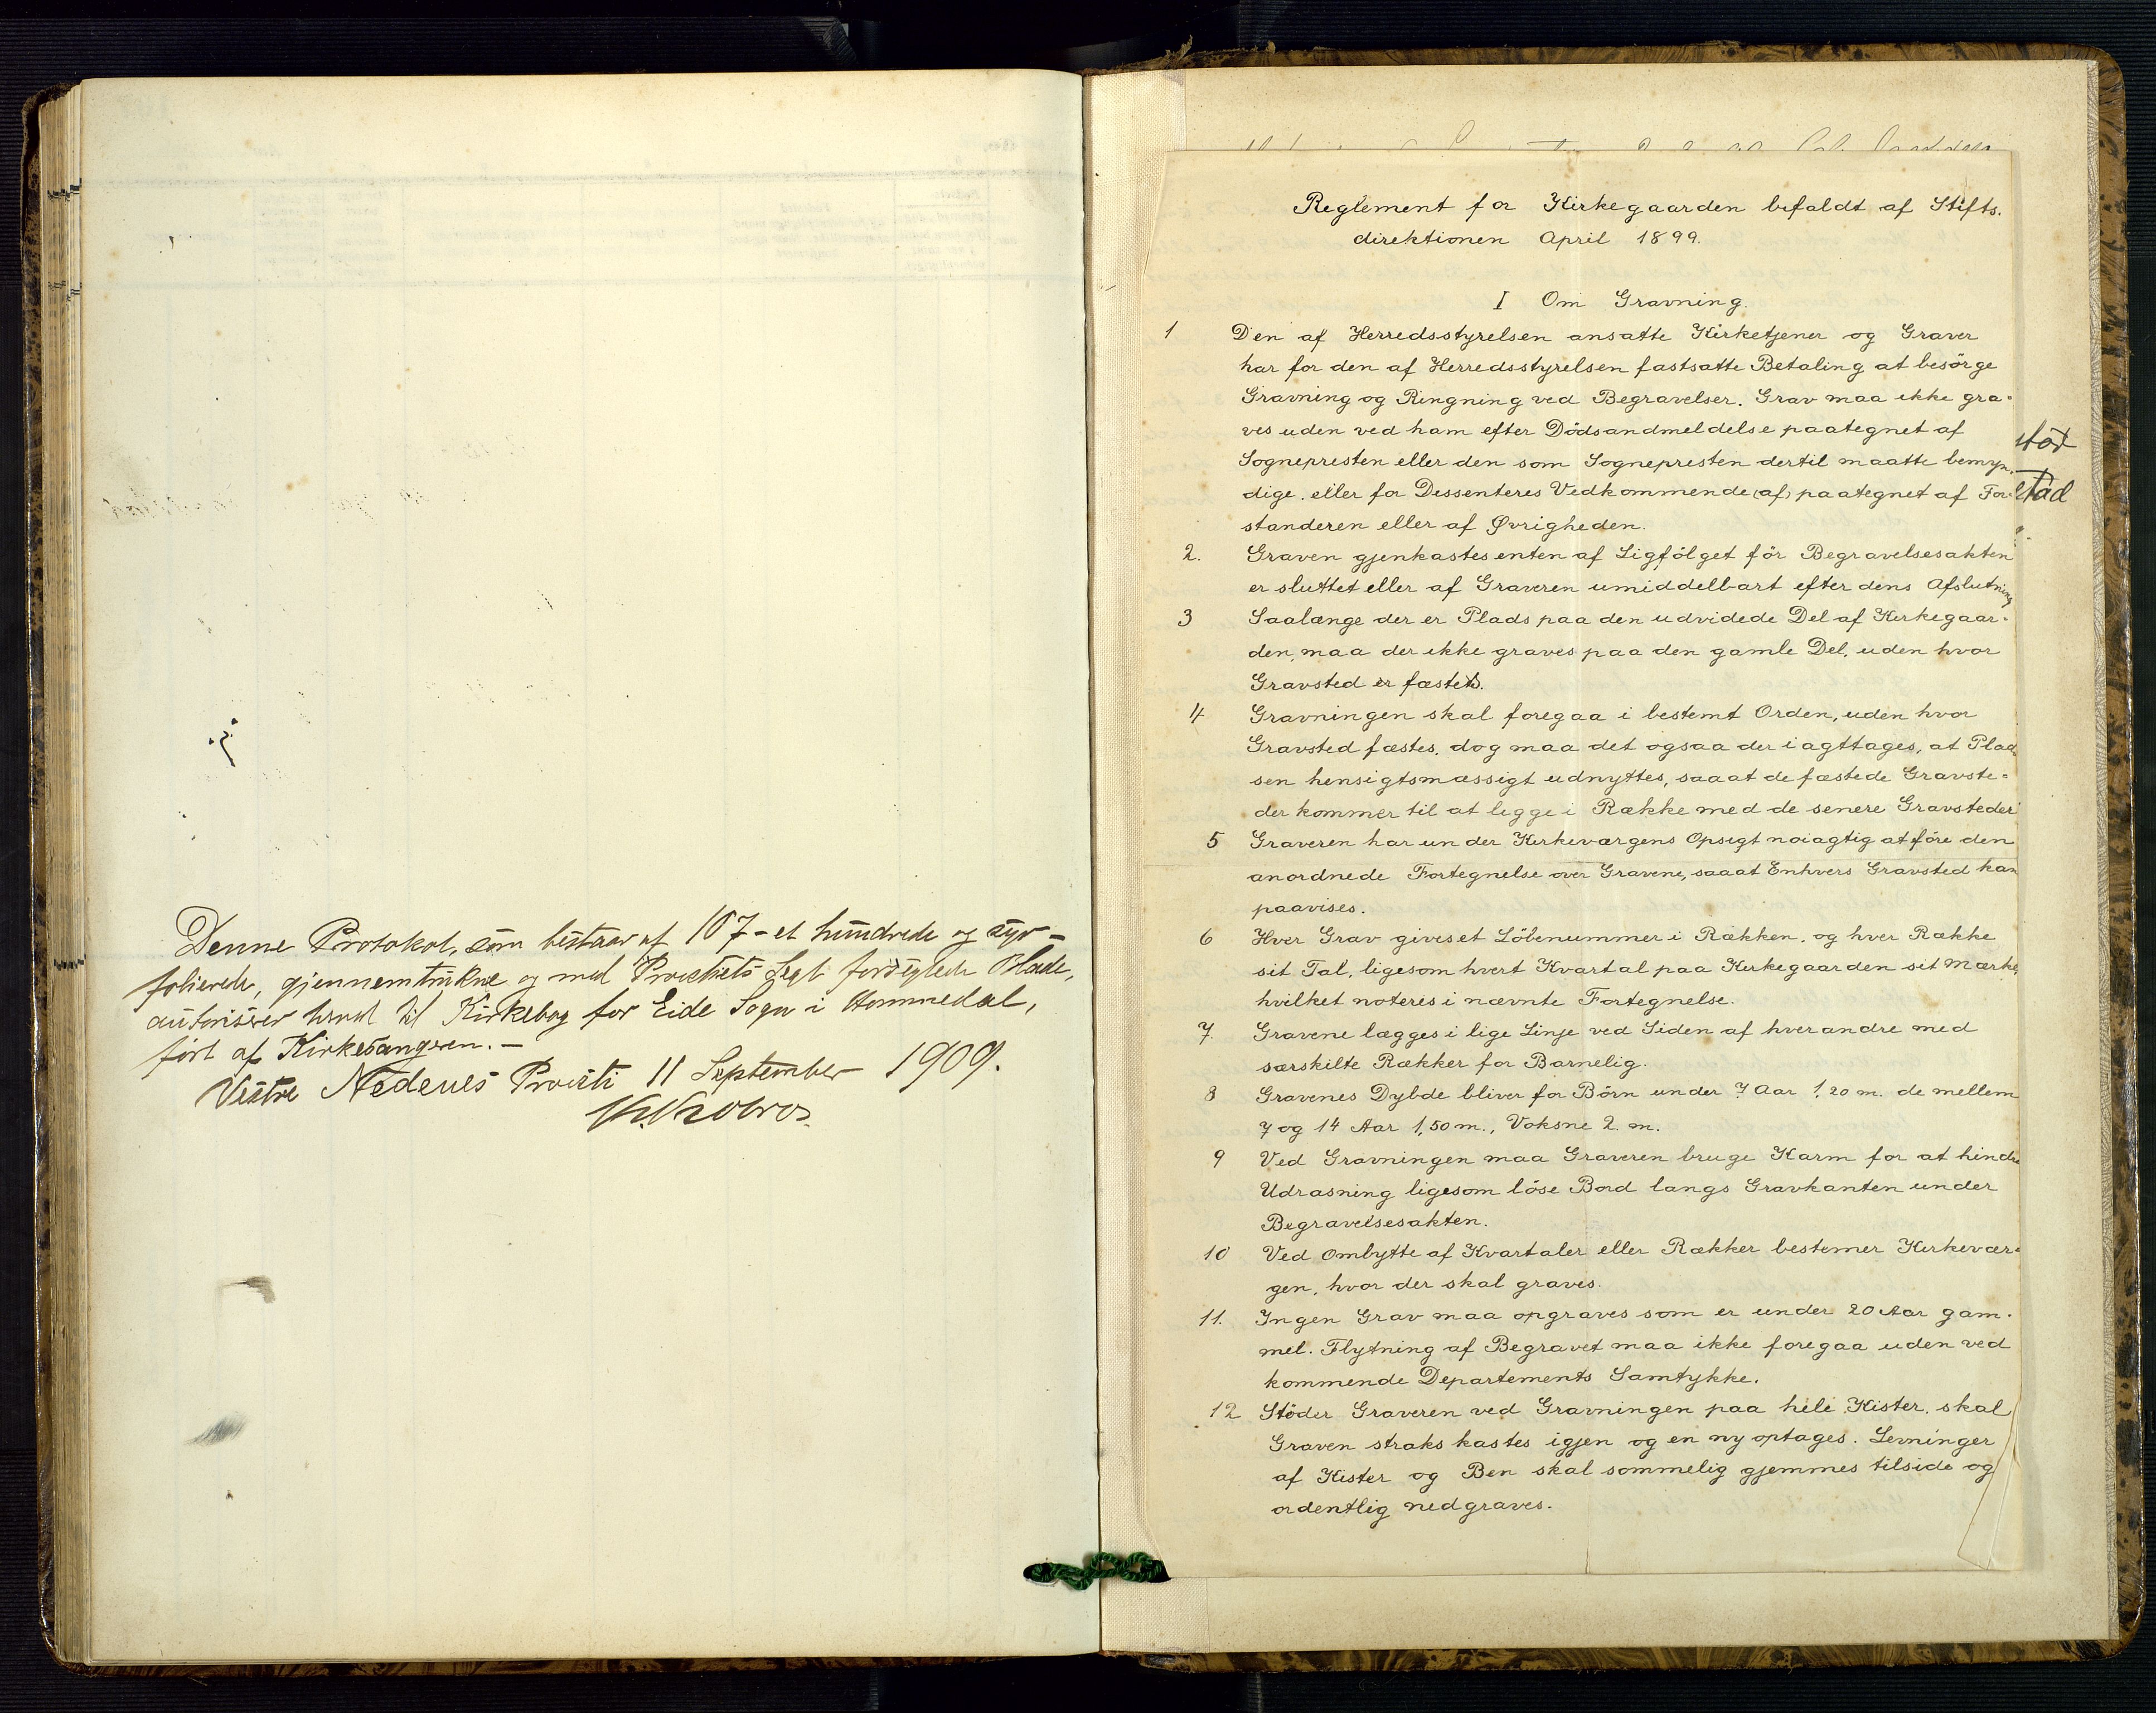 Denne Protokol, som bestaar af 107 - et hundrede og syv -
folierede, gjennemtrukne og med Provstiets Segl forseglede Blade,
autoriseres herved til Kirkebog for Eide Sogn i Hommedal,
ført af Kirkesangeren. -
Vestre Nedenes Provsti 11 September 1909.
Reglement for Kirkegaarden befaldt af Stifts.
direktionen April 1899.
I Om Gravning.
1 Den af Herredsstyrelsen ansatte Kirketjener og Graver
har for den af Herredsstyrelsen fastsatte Betaling at besörge
Gravning og Ringning ved Begravelser. Grav maa ikke gra=
ves uden ved ham efter Dödsandmeldelse paategnet af
Sognepresten eller den som Sognepresten dertil maatte bemyn=
dige. eller for Dessenteres Vedkommende (af) paategnet af For=
standeren eller af Øvrigheden.
2. Graven gjenkastes enten af Ligfölget för Begravelsesakten
er sluttet eller af Graveren umiddelbart efter dens Afslutning
3 Saalænge der er Plads paa den udvidede Del af Kirkegaar=
den, maa der ikke graves paa den gamle Del, uden hvor
Gravsted er fæstet.
4 Gravningen skal foregaa i bestemt Orden, uden hvor
Gravsted fæstes, dog maa det ogsaa der iagttages, at Plad
sen hensigtsmæssigt udnyttes, saaat de fæstede Gravste=
der kommer til at legge i Række med de senere Gravsteder
5 Graveren har under Kirkeværgens Opsigt nöiagtig at före den
anordnede Fortegnelse over Gravene, saaat Enhvers Gravsted kan
paavises.
6 Hver Grav gives et Löbenummer i Rækken, og hver Række
sit Tal, ligesom hvert Kvartal paa Kirkegaarden sit Mærke,
hvilket noteres i nævnte Fortegnelse.
7. Gravene lægges i lige Linje ved Siden af hverandre med
særskilte Rækker for Barnelig.
8 Gravenes Dybde bliver for Börn under 7 Aar 1,20 m. de mellem
7 og 14 Aar 1,50 m., Voksne 2. m.
9 Ved Gravningen maa Graveren bruge Karm for at hindre
Udrasning ligesom löse Bord langs Gravkanten under
Begravelsesakten.
10 Ved Ombytte af Kvartaler eller Rækker bestemer Kirkevær=
gen, hvor der skal graves.
11. Ingen Grav maa opgraves som er under 20 Aar gam=
mel. Flytning af Begravet maa ikke foregaa uden ved
kommende Departements Samtykke.
12 Stöder Graveren ved Gravningen paa hele Kister, skal
Graven straks kastes igjen og en ny optages. Levninger
af Kister og Ben skal sommelig gjemmes tilside og
ordentlig nedgraves.